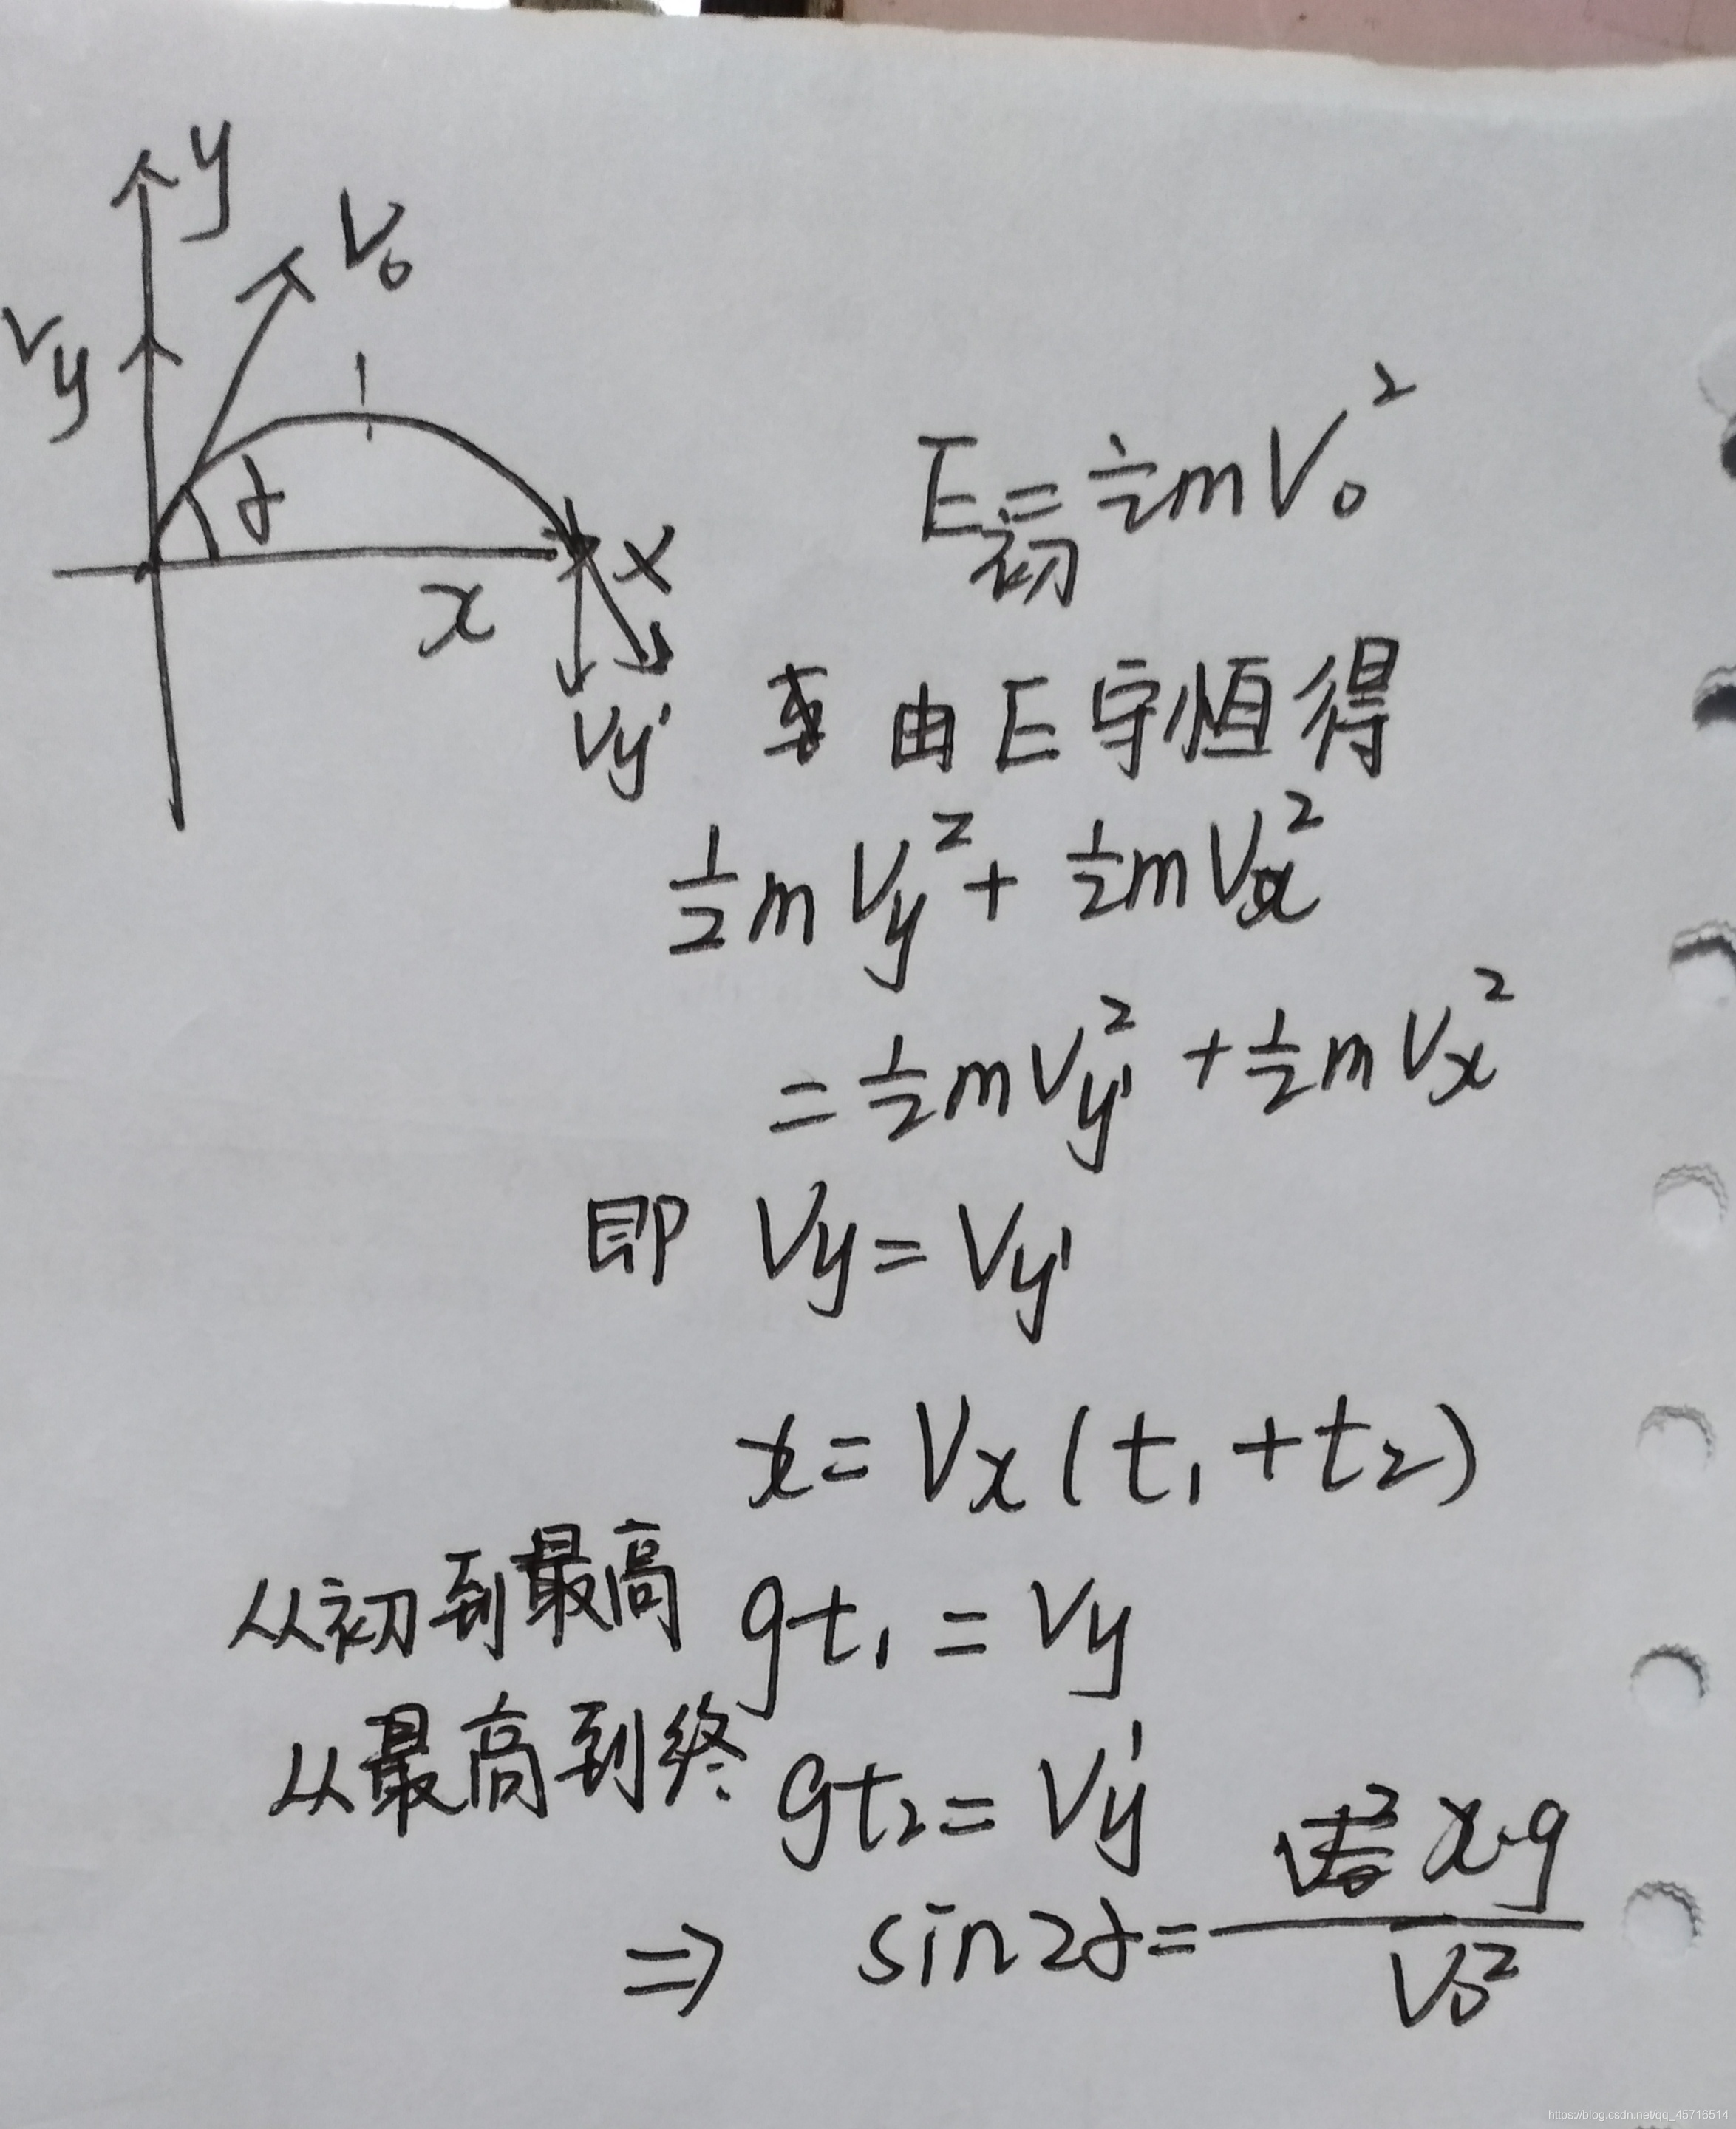 y
V₀
Vy
α
x
x
Vy'
E初 = ½mV₀²
由E守恒得
½mVy² + ½mVx²
= ½mVy'² + ½mVx²
即 Vy = Vy'
x = Vx(t₁+t₂)
从初到最高 gt₁ = Vy
从最高到终 gt₂ = Vy'
⇒ sin2α = x·g / V₀²
https://blog.csdn.net/qq_45716514